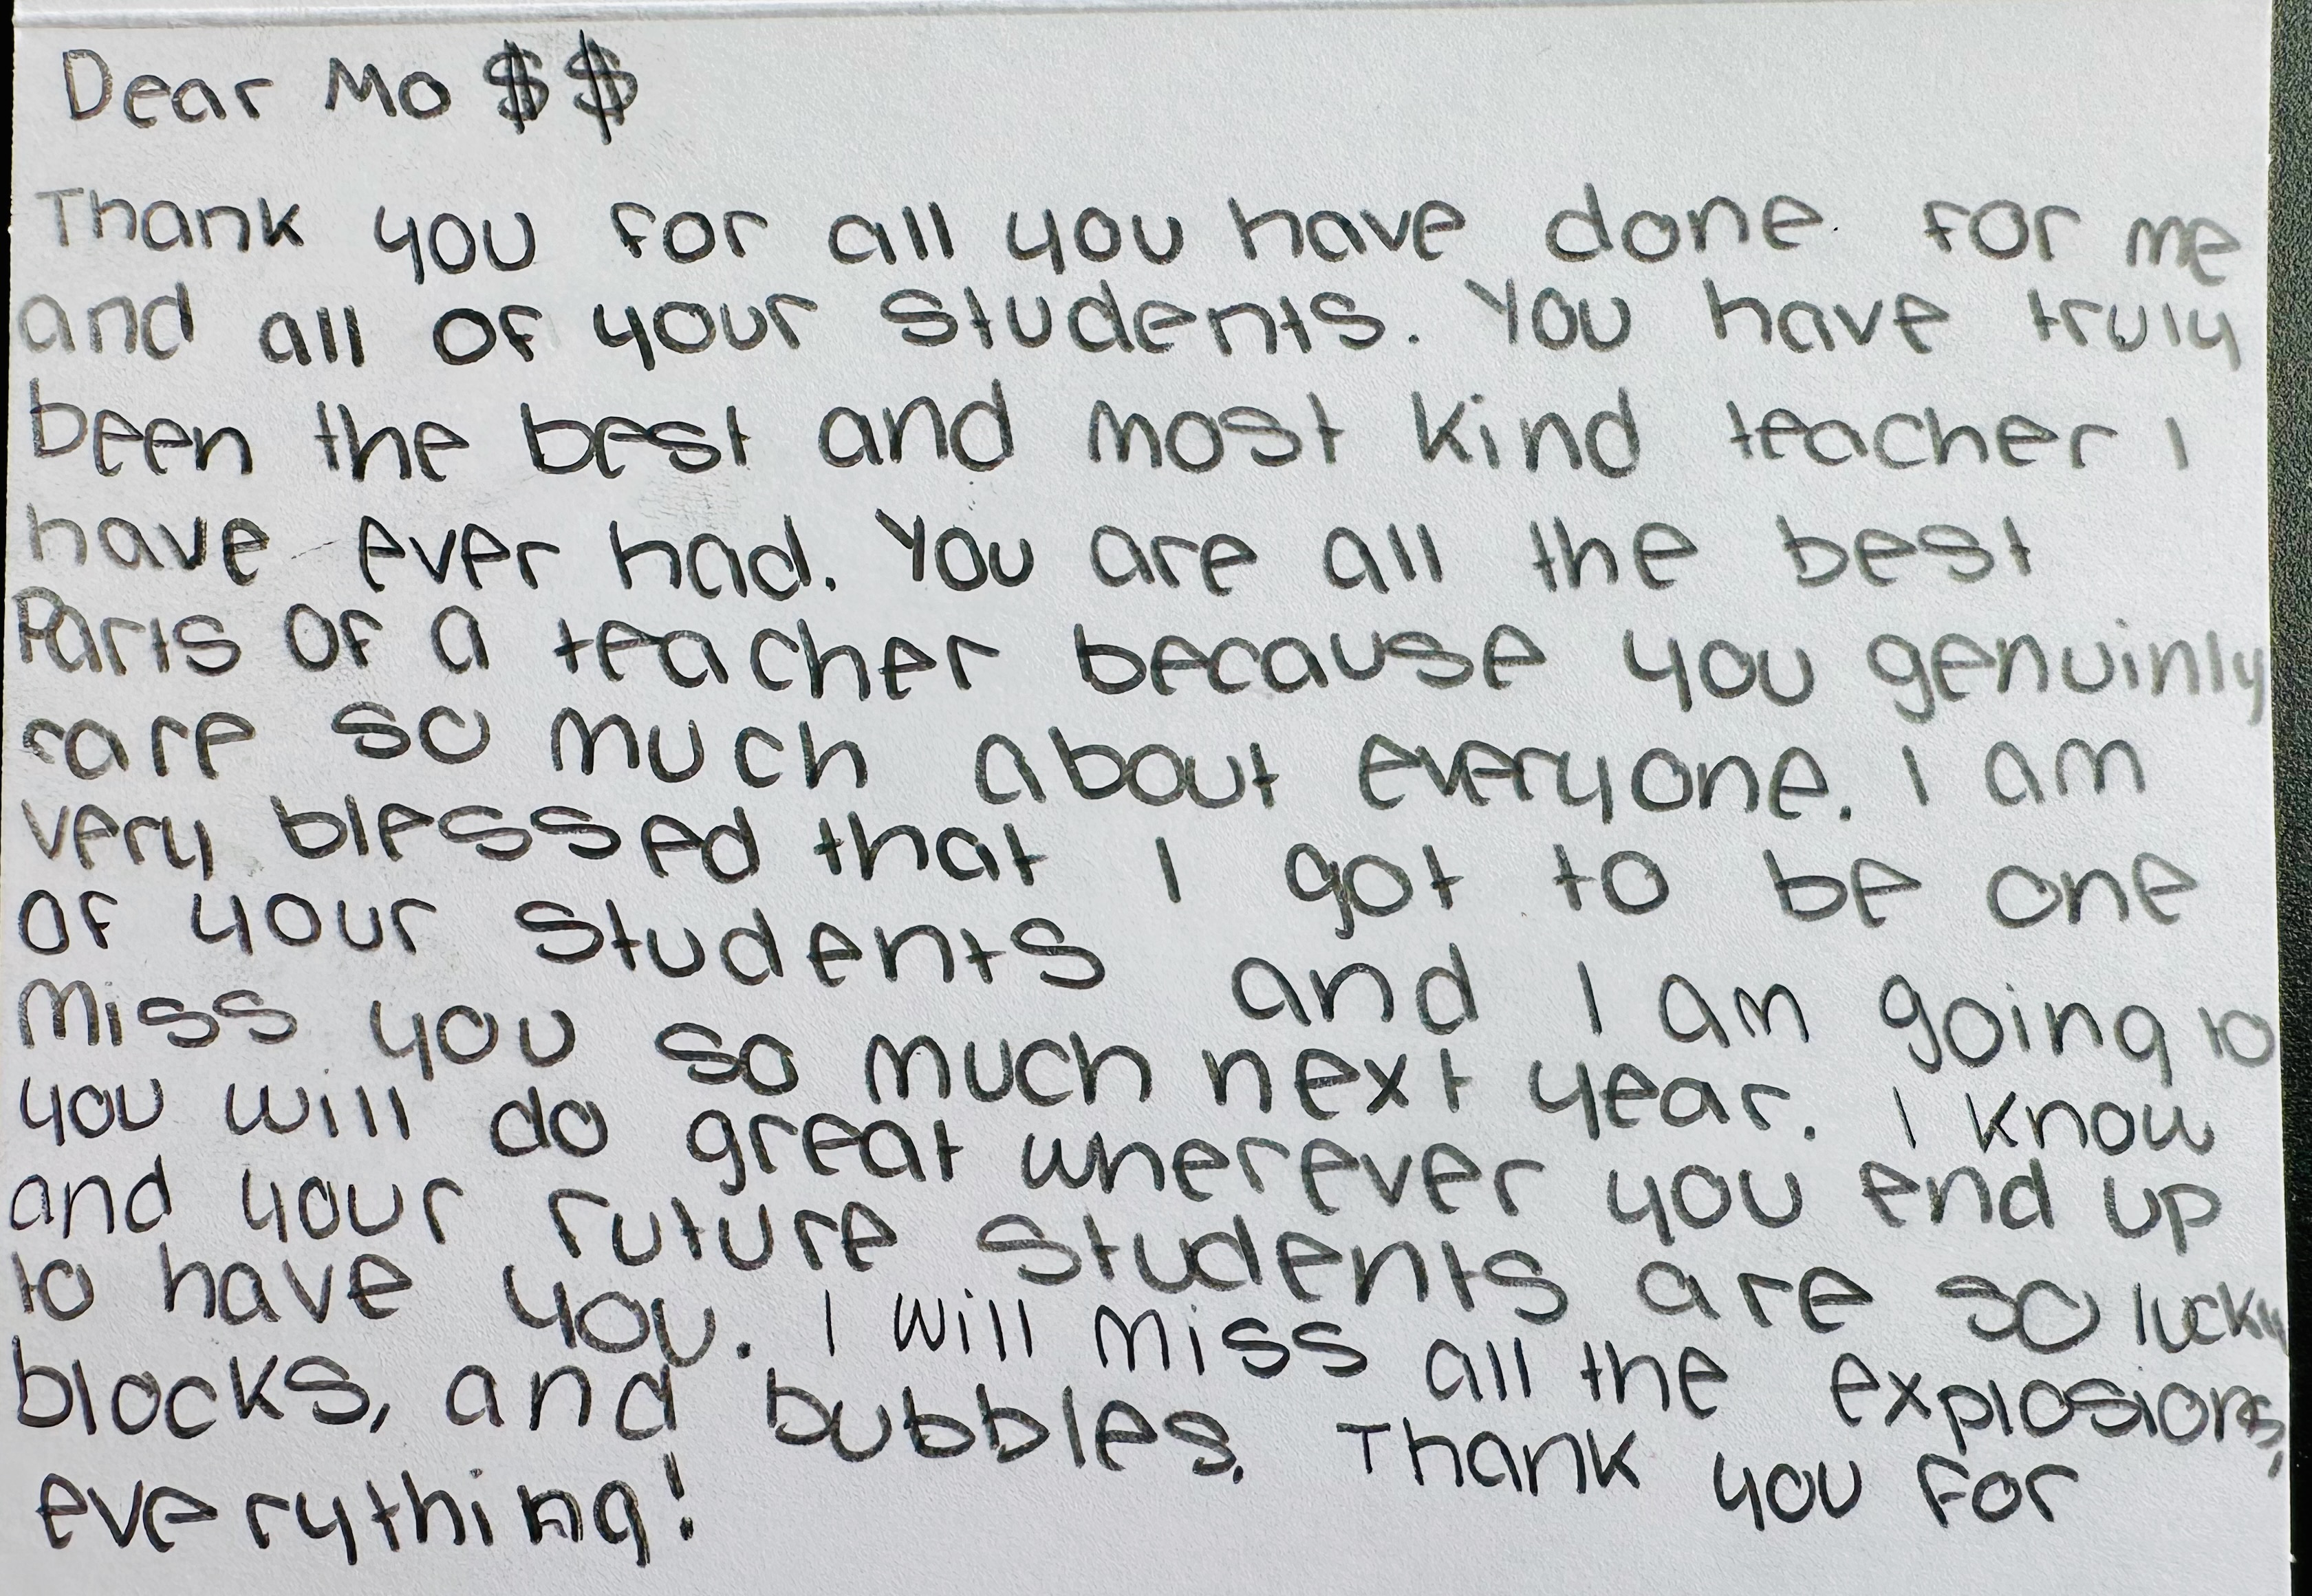 Dear Mo $$
Thank you for all you have done for me
and all of your students. You have truly
been the best and most kind teacher I
have ever had. You are all the best
Parts of a teacher because you genuinly
care so much about everyone. I am
very blessed that I got to be one
of your students and I am going to
miss you so much next year. I know
you will do great wherever you end up
and your future students are so lucky
to have you. I will miss all the explosions,
blocks, and bubbles. Thank you for
everything!